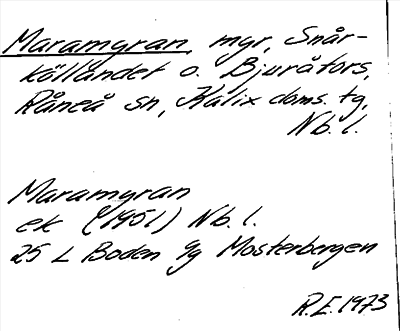 Maramyran, myr, Snår-
källandet o. Bjuråfors,
Råneå sn, Kalix doms. tg,
Nb. l.
Maramyran
ek (1951) Nb. l.
25 L Boden g/g Mosterbergen
R.E. 1973